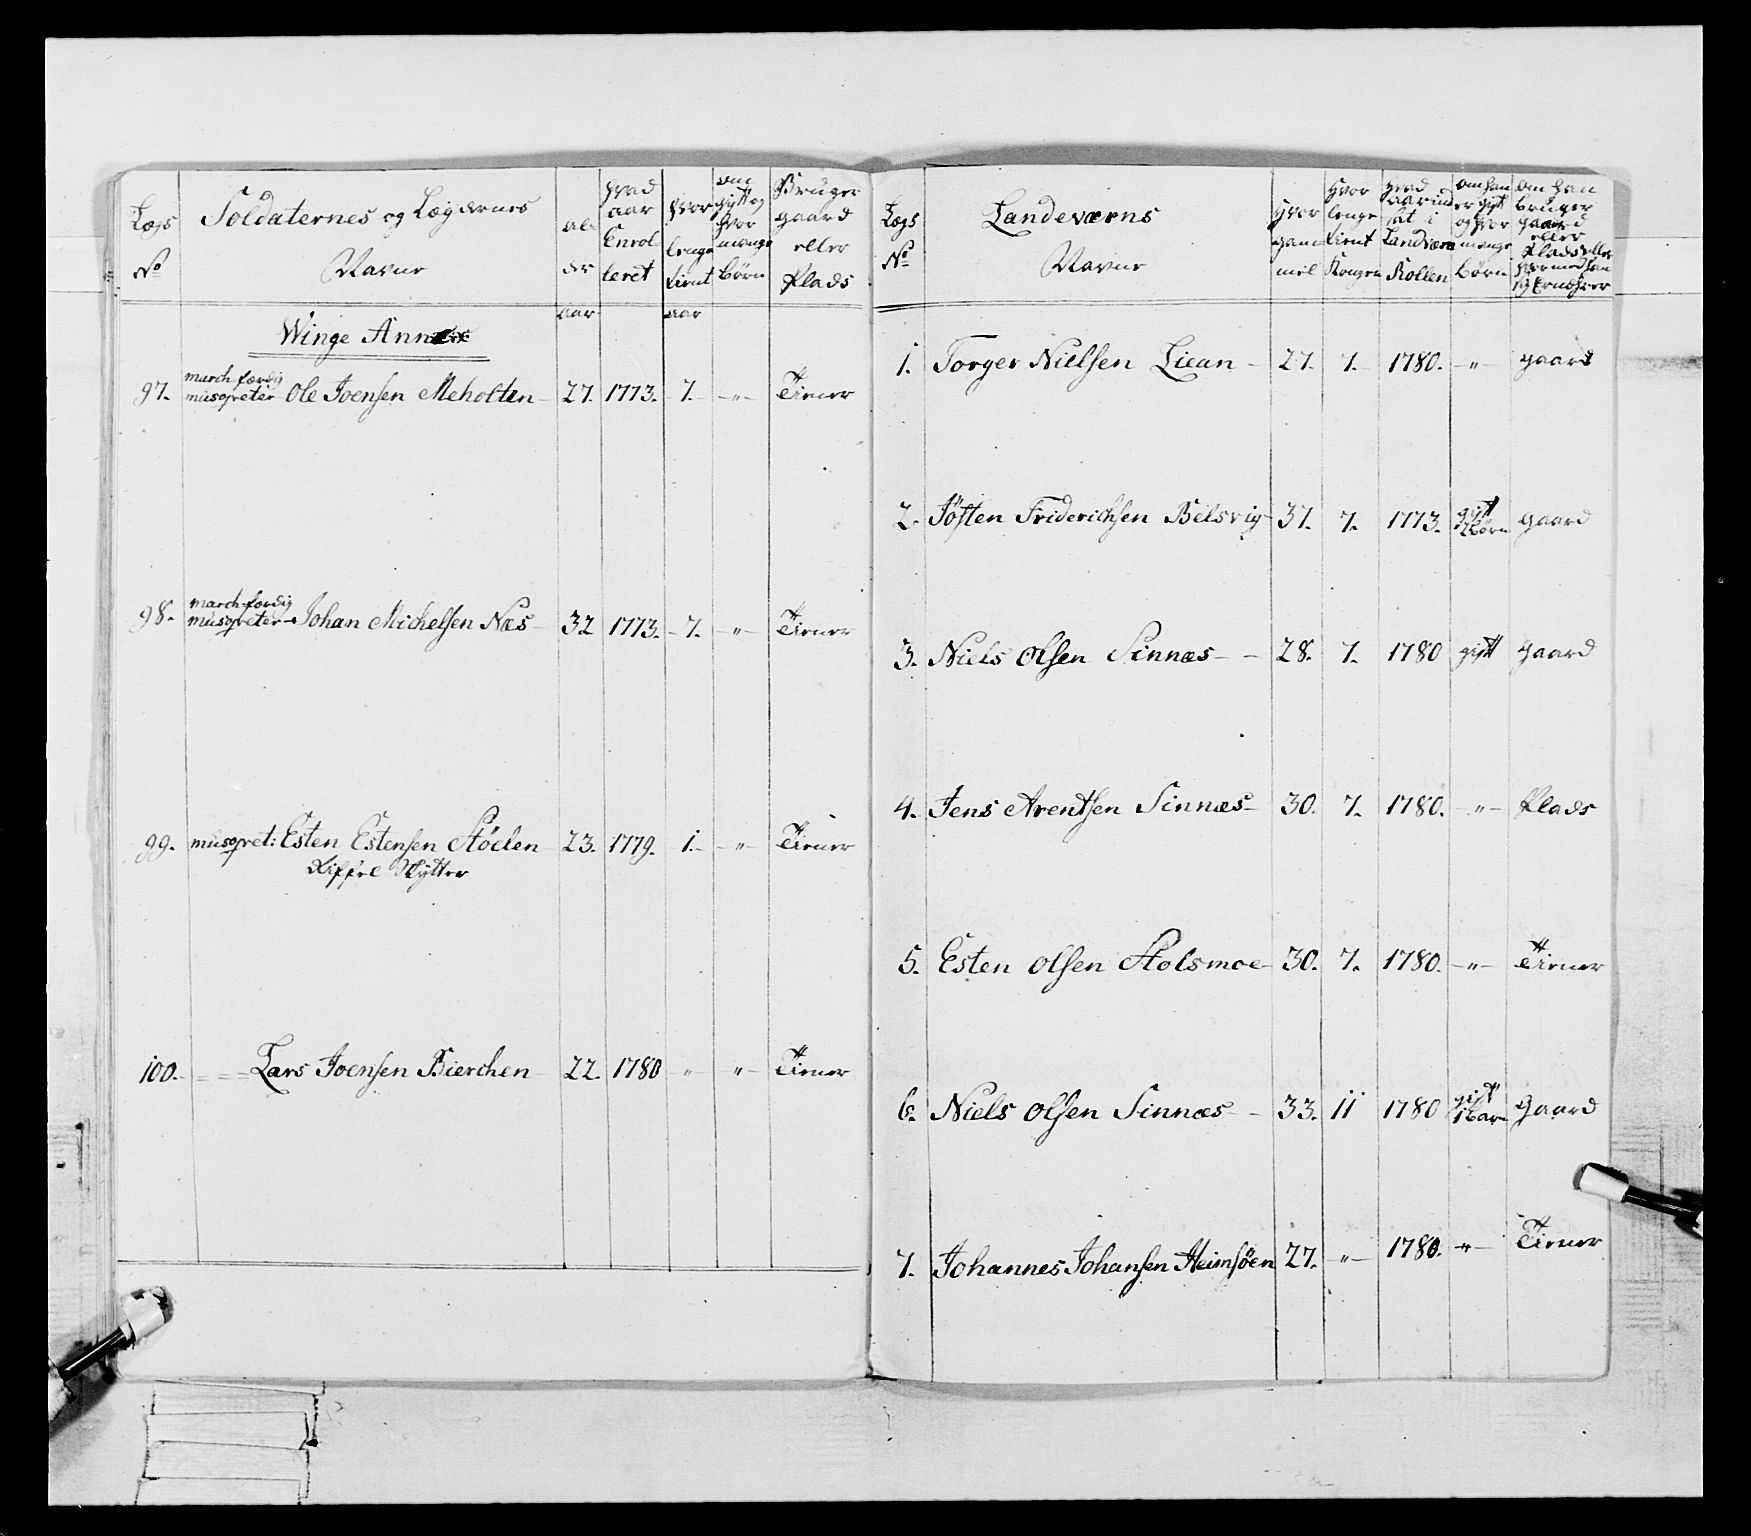 Lægs No
Soldaternes og Lægdernes Navne
al der
hvad aar Enrolleret
hvor lenge tient
om gift og hvor mange børn
Bruger gaard eller Plads
aar aar
Winge Annex
97. march-færdig musqveter Ole Joensen Meholten 27. 1773. 7. - " - Tiener
98. march-færdig musqveter Johan Michelsen Næs 32 1773. 7. - " - Tiener
99. musqvet: Esten Estensen Støelen 23. 1779. 1. - " Tiener
Riffel Skytter
100. Lars Joensen Bierchen 22. 1780 " " Tiener
Lægs No
Landeværns Navne
Hvor gam mel
Hvor lenge tient Kongen
Hvad aar ind sat i Landværn Rollen
om han er gift og hvor mange børn
om han bruger gaard eller Plads eller hvormed han sig Ernæhrer
1. Torger Nielsen Liean - 27. 7. 1780. - " - gaard
2. Jøsten Friderichsen Belsvig 37. 7. 1773. gift 2 børn gaard
3. Niels Olsen Sinnæs - - 28. 7. 1780 gift gaard
4. Jens Arentsen Sinnæs - 30. 7. 1780. - " - Plads
5. Esten Olsen Stolsmoe - 30. 7. 1780. - " - Tiener
6. Niels Olsen Sinnæs - - 33. 11 1780 gift 1 barn Gaard
7. Johannes Johansen Heimsøen 27. - " - 1780. - " - Tiener